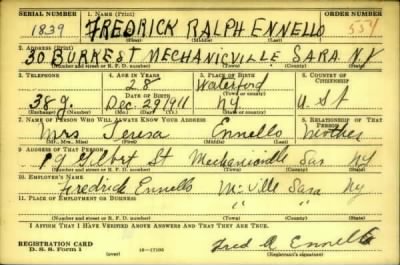 SERIAL NUMBER 1. NAME (Print) ORDER NUMBER
1839 FREDRICK RALPH ENNELLO 554
(First) (Middle) (Last)
2. ADDRESS (Print)
30 BURKE ST MECHANICVILLE SARA. NY
(Number and street or R. F. D. number) (Town) (County) (State)
3. TELEPHONE 4. AGE IN YEARS 5. PLACE OF BIRTH 6. COUNTRY OF CITIZENSHIP
28 Waterford
DATE OF BIRTH
38 J. Dec. 29 1911 NY U.S.A
7. NAME OF PERSON WHO WILL ALWAYS KNOW YOUR ADDRESS 8. RELATIONSHIP OF THAT PERSON
Mrs Teresa Ennello Mother
(Mr., Mrs., Miss) (First) (Middle) (Last)
9. ADDRESS OF THAT PERSON
St Mechanicville Sar NY
(Number and street or R. F. D. number) (Town) (County) (State)
10. EMPLOYER'S NAME
Fredrick Ennello McVille Sara Ny
11. PLACE OF EMPLOYMENT OR BUSINESS
" " "
(Number and street or R. F. D. number) (Town) (County) (State)
I AFFIRM THAT I HAVE VERIFIED ABOVE ANSWERS AND THAT THEY ARE TRUE.
REGISTRATION CARD
D. S. S. Form 1 (over) Fred R Ennello
(Registrant's signature)